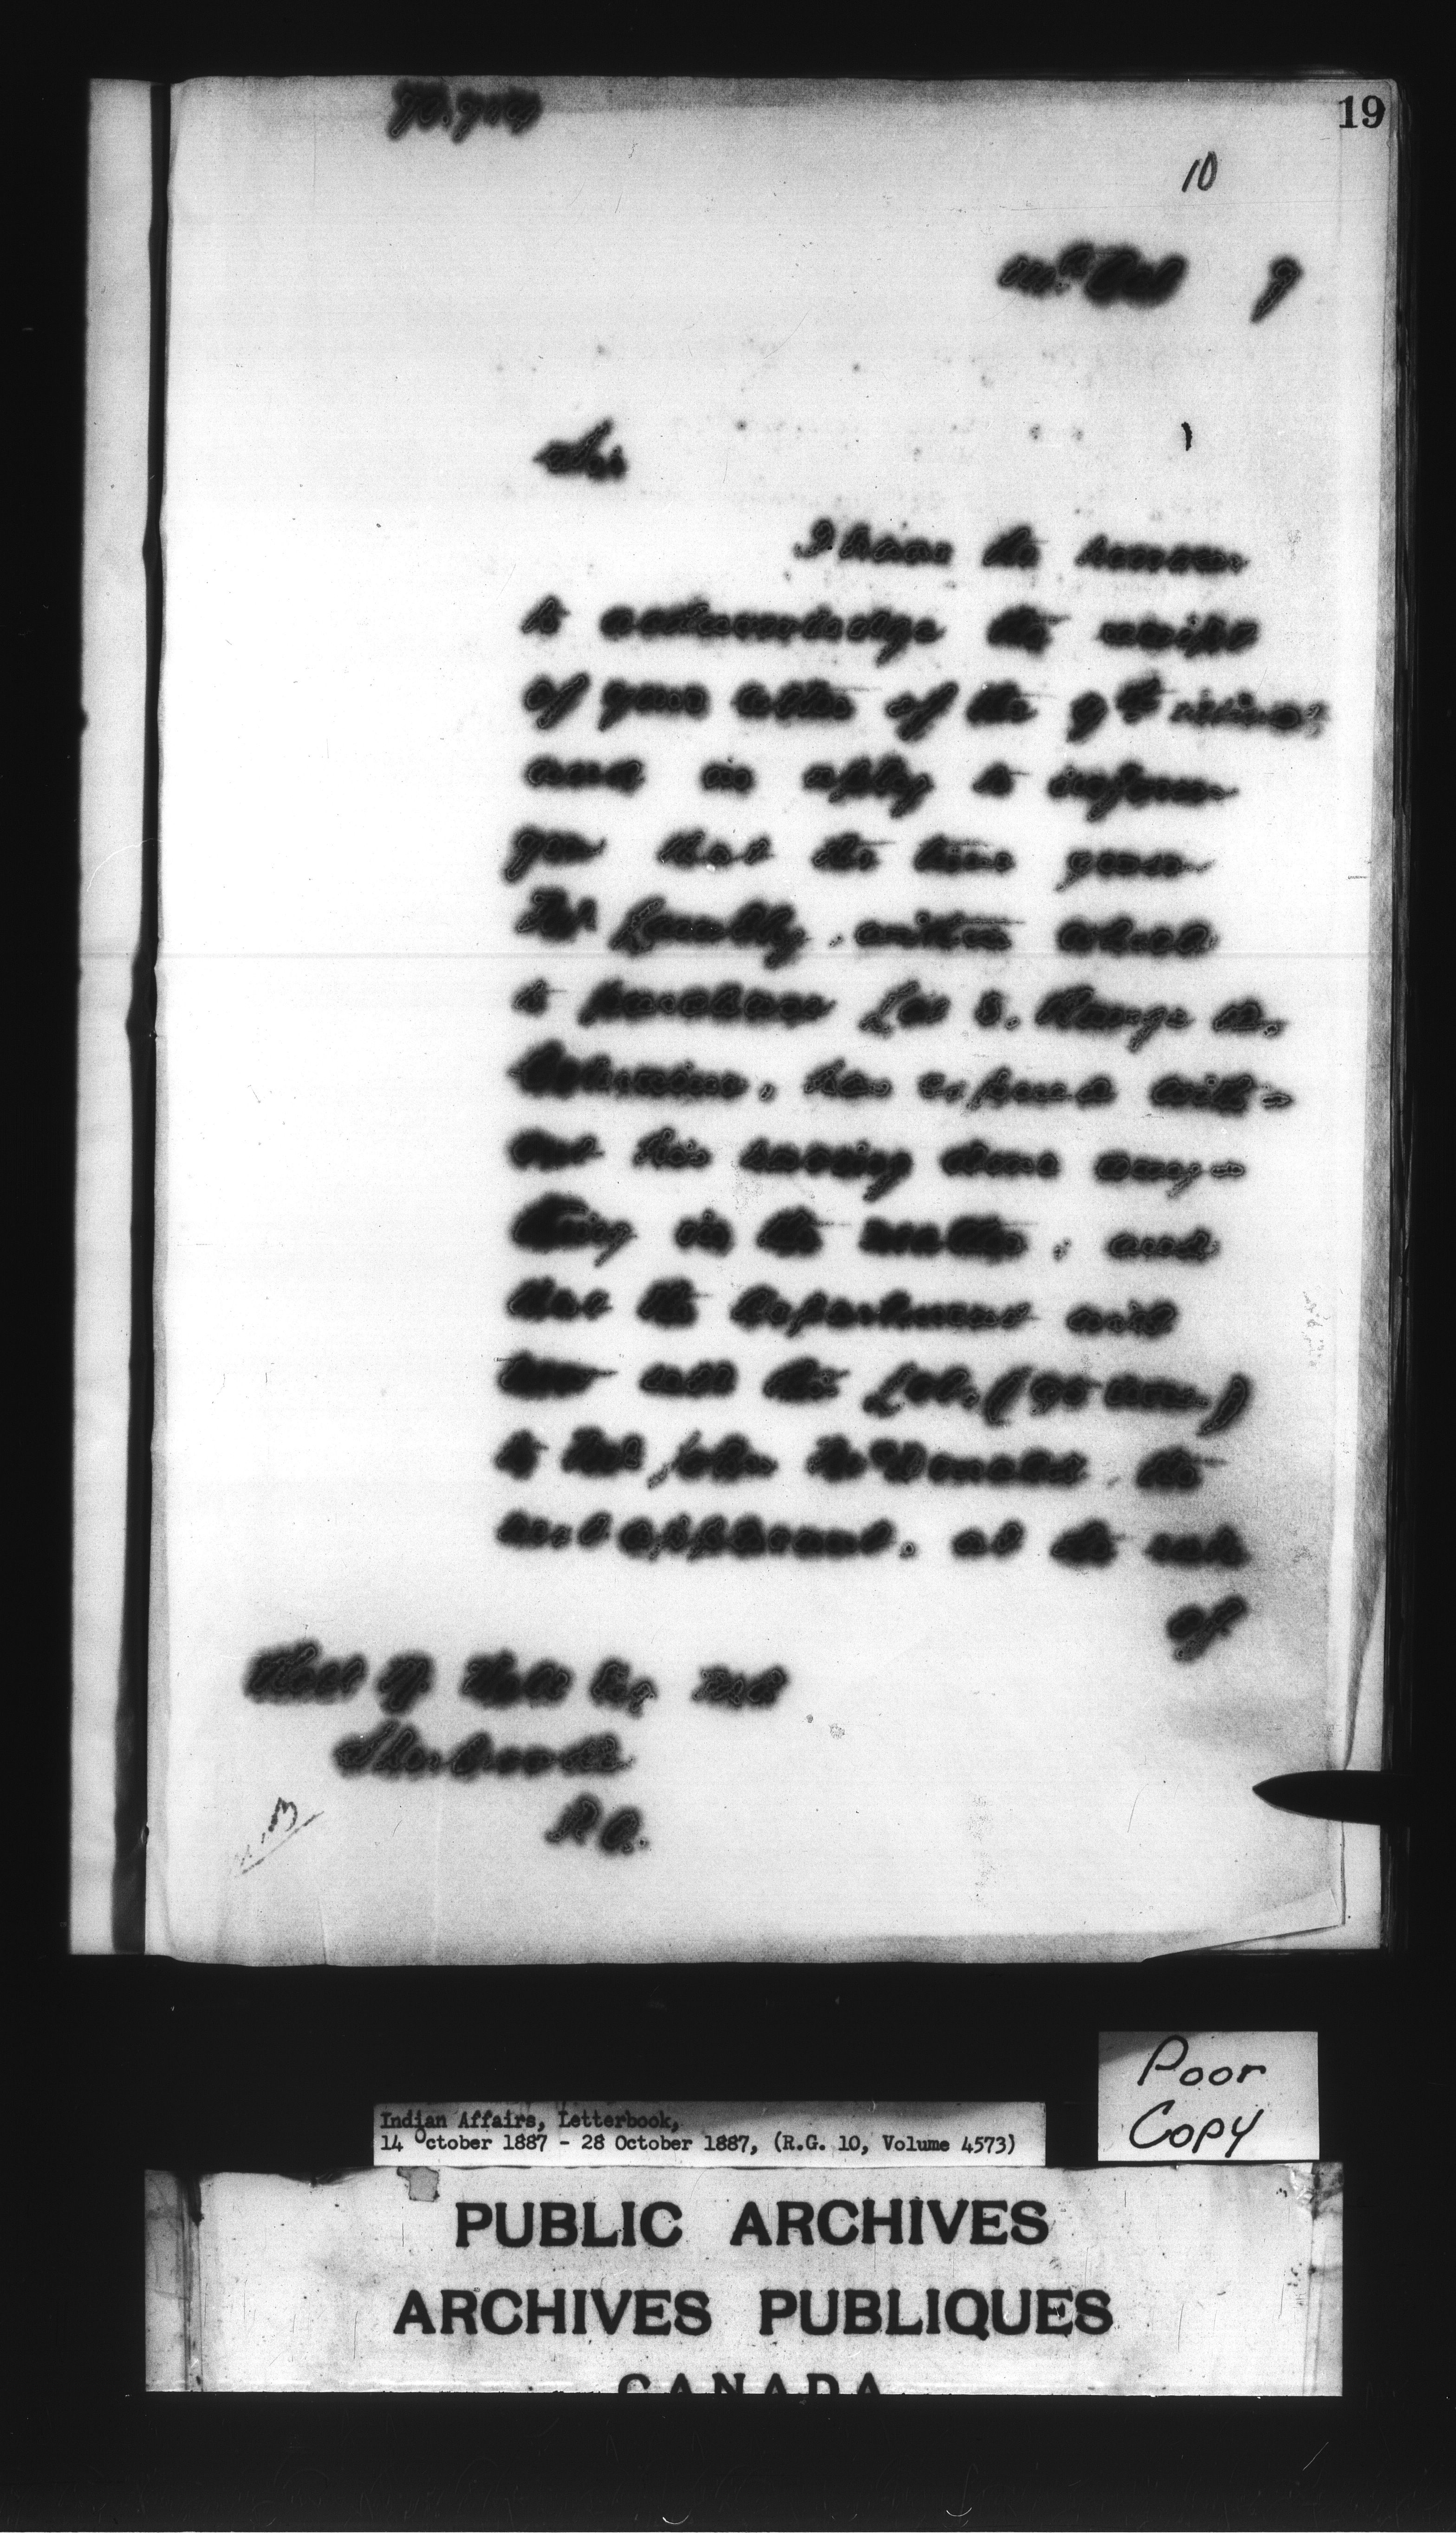 19
10
Oct 7
Sir
I have the honour
to acknowledge the receipt
of your letter of the 9th instant
and in reply to inform
you that the time given
Mr within which
to purchase Lot 8. Range
has expired with-
out his having done any-
thing in the matter, and
that the Department will
now sell the Lot, (90 acres)
to Mr John McDonald, the
next applicant, at the rate
of
Hall Esq
Sherbrooke
P.Q.
Poor
Copy
Indian Affairs, Letterbook,
14 October 1887 - 28 October 1887, (R.G. 10, Volume 4573)
PUBLIC ARCHIVES
ARCHIVES PUBLIQUES
CANADA